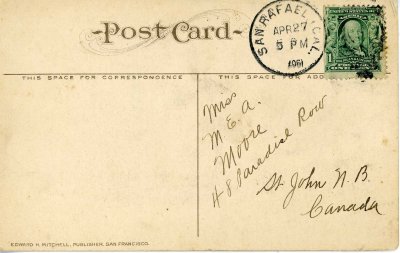 Post Card
SAN RAFAEL, CAL.
APR 27
5 PM
THIS SPACE FOR CORRESPONDENCE
THIS SPACE FOR ADD
Miss
M. E. A.
Moore
48 Paradise Row
St. John N. B
Canada
EDWARD H. MITCHELL, PUBLISHER, SAN FRANCISCO.